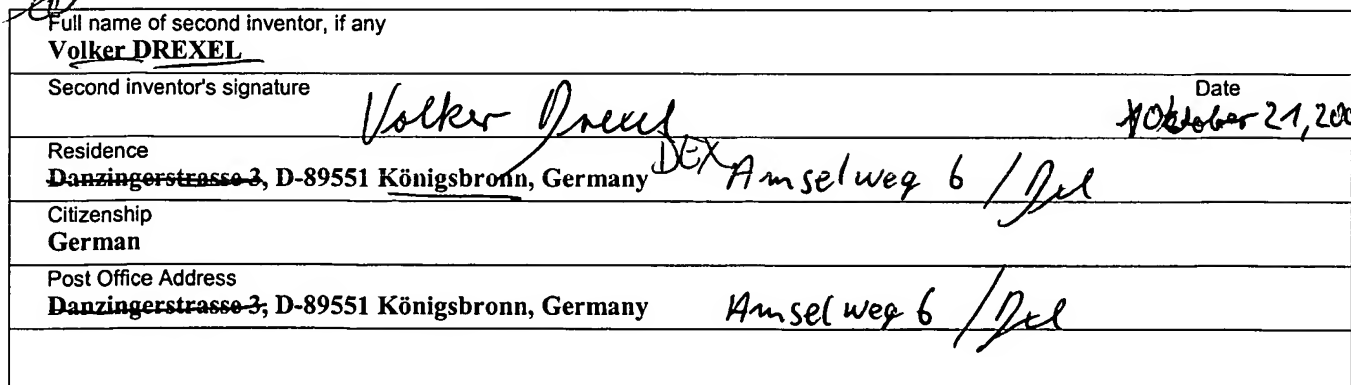 Full name of second inventor, if any
Volker DREXEL
Second inventor's signature Date
Volker Drexel Oktober 21, 200
Residence
Danzingerstrasse 3, D-89551 Königsbronn, Germany DEX Amselweg 6 /
Citizenship
German
Post Office Address
Danzingerstrasse 3, D-89551 Königsbronn, Germany Amselweg 6 /